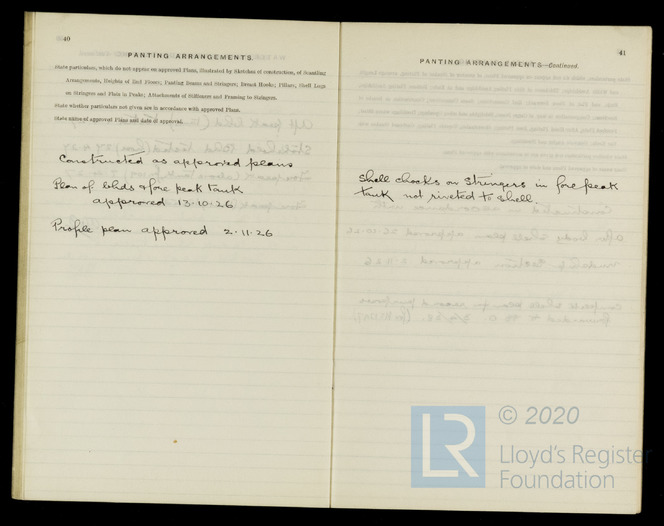 40
PANTING ARRANGEMENTS.
State particulars, which do not appear on approved Plans, illustrated by Sketches of construction, of Scantling
Arrangements, Heights of End Floors; Panting Beams and Stringers; Breast Hooks; Pillars; Shell Lugs
on Stringers and Flats in Peaks; Attachments of Stiffeners and Framing to Stringers.
State whether particulars not given are in accordance with approved Plans.
State nature of approved Plans and date of approval.
Constructed as approved plans
Plan of blhds & fore peak tank
approved 13.10.26
Profile plan approved 2.11.26
41
PANTING ARRANGEMENTS—Continued.
Shell chocks on Stringers in fore peak
tank not riveted to shell.
LR
© 2020
Lloyd's Register
Foundation